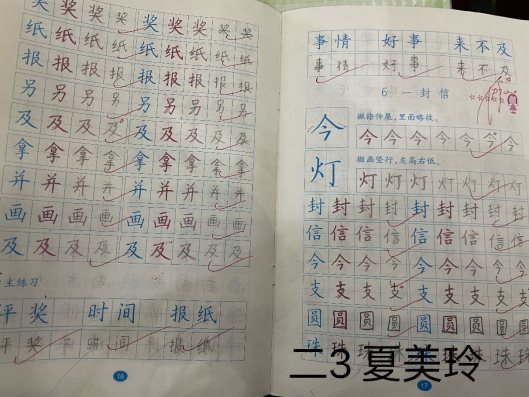 奖奖奖奖奖奖奖奖奖
纸纸纸纸纸纸纸纸纸
报报报报报报报报报
另另另另另另另另另
及及及及及及及及及
拿拿拿拿拿拿拿拿拿
并并并并并并并并
画画画画画画画画画
及及及及及及及及及
主练习
平奖 时间 报纸
平奖 时间 报纸
16
事情 好事 来不及
事情 好事 来不及
6 一封信
今 撇捺伸展，里面略收。
今今今今今今今
灯 撇画竖行，左高右低。
灯灯灯灯灯灯灯
封封封封封封封封封
信信信信信信信信信
今今今今今今今今今
支支支支支支支支支
圆圆圆圆圆圆圆圆圆
珠珠珠珠珠珠珠珠
二3 夏美玲
17